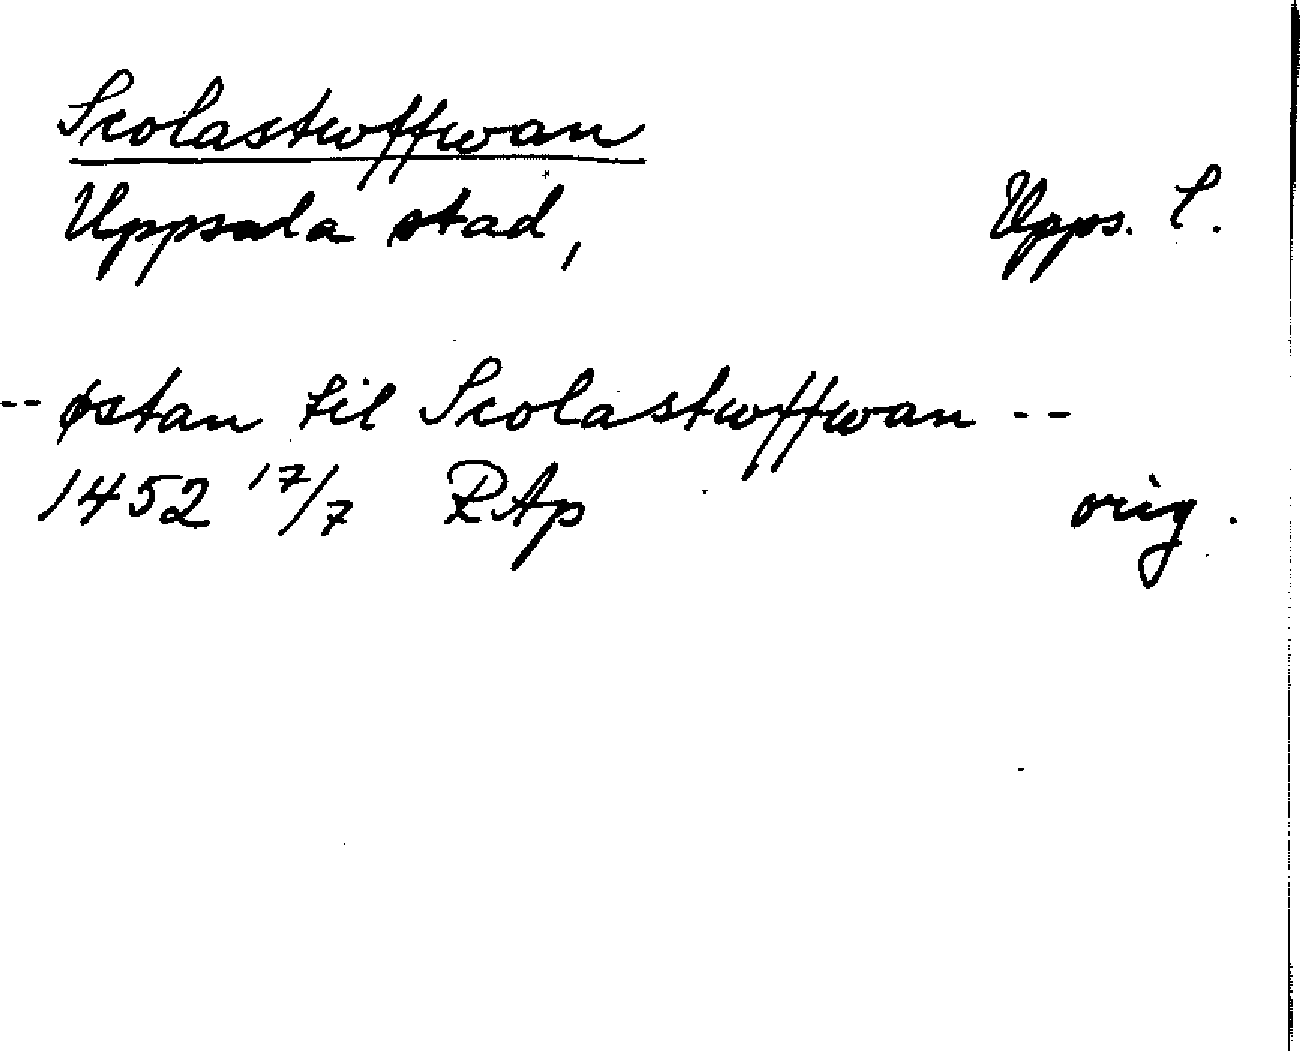 Scolastwffwan
Uppsala stad, Upps. l.
-- østan til Scolastwffwan --
1452 17/7 RAp orig.